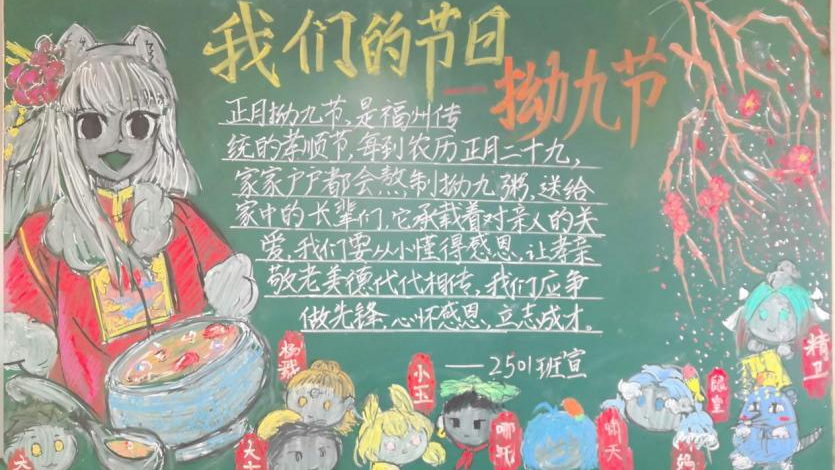 我们的节日
——拗九节
正月拗九节,是福州传
统的孝顺节,每到农历正月二十九,
家家户户都会熬制拗九粥,送给
家中的长辈们,它承载着对亲人的关
爱,我们要从小懂得感恩,让孝亲
敬老美德代代相传,我们应争
做先锋,心怀感恩,立志成才。
——2501班宣
杨戬
小玉
哪吒
啸天
鼠皇
精卫
大